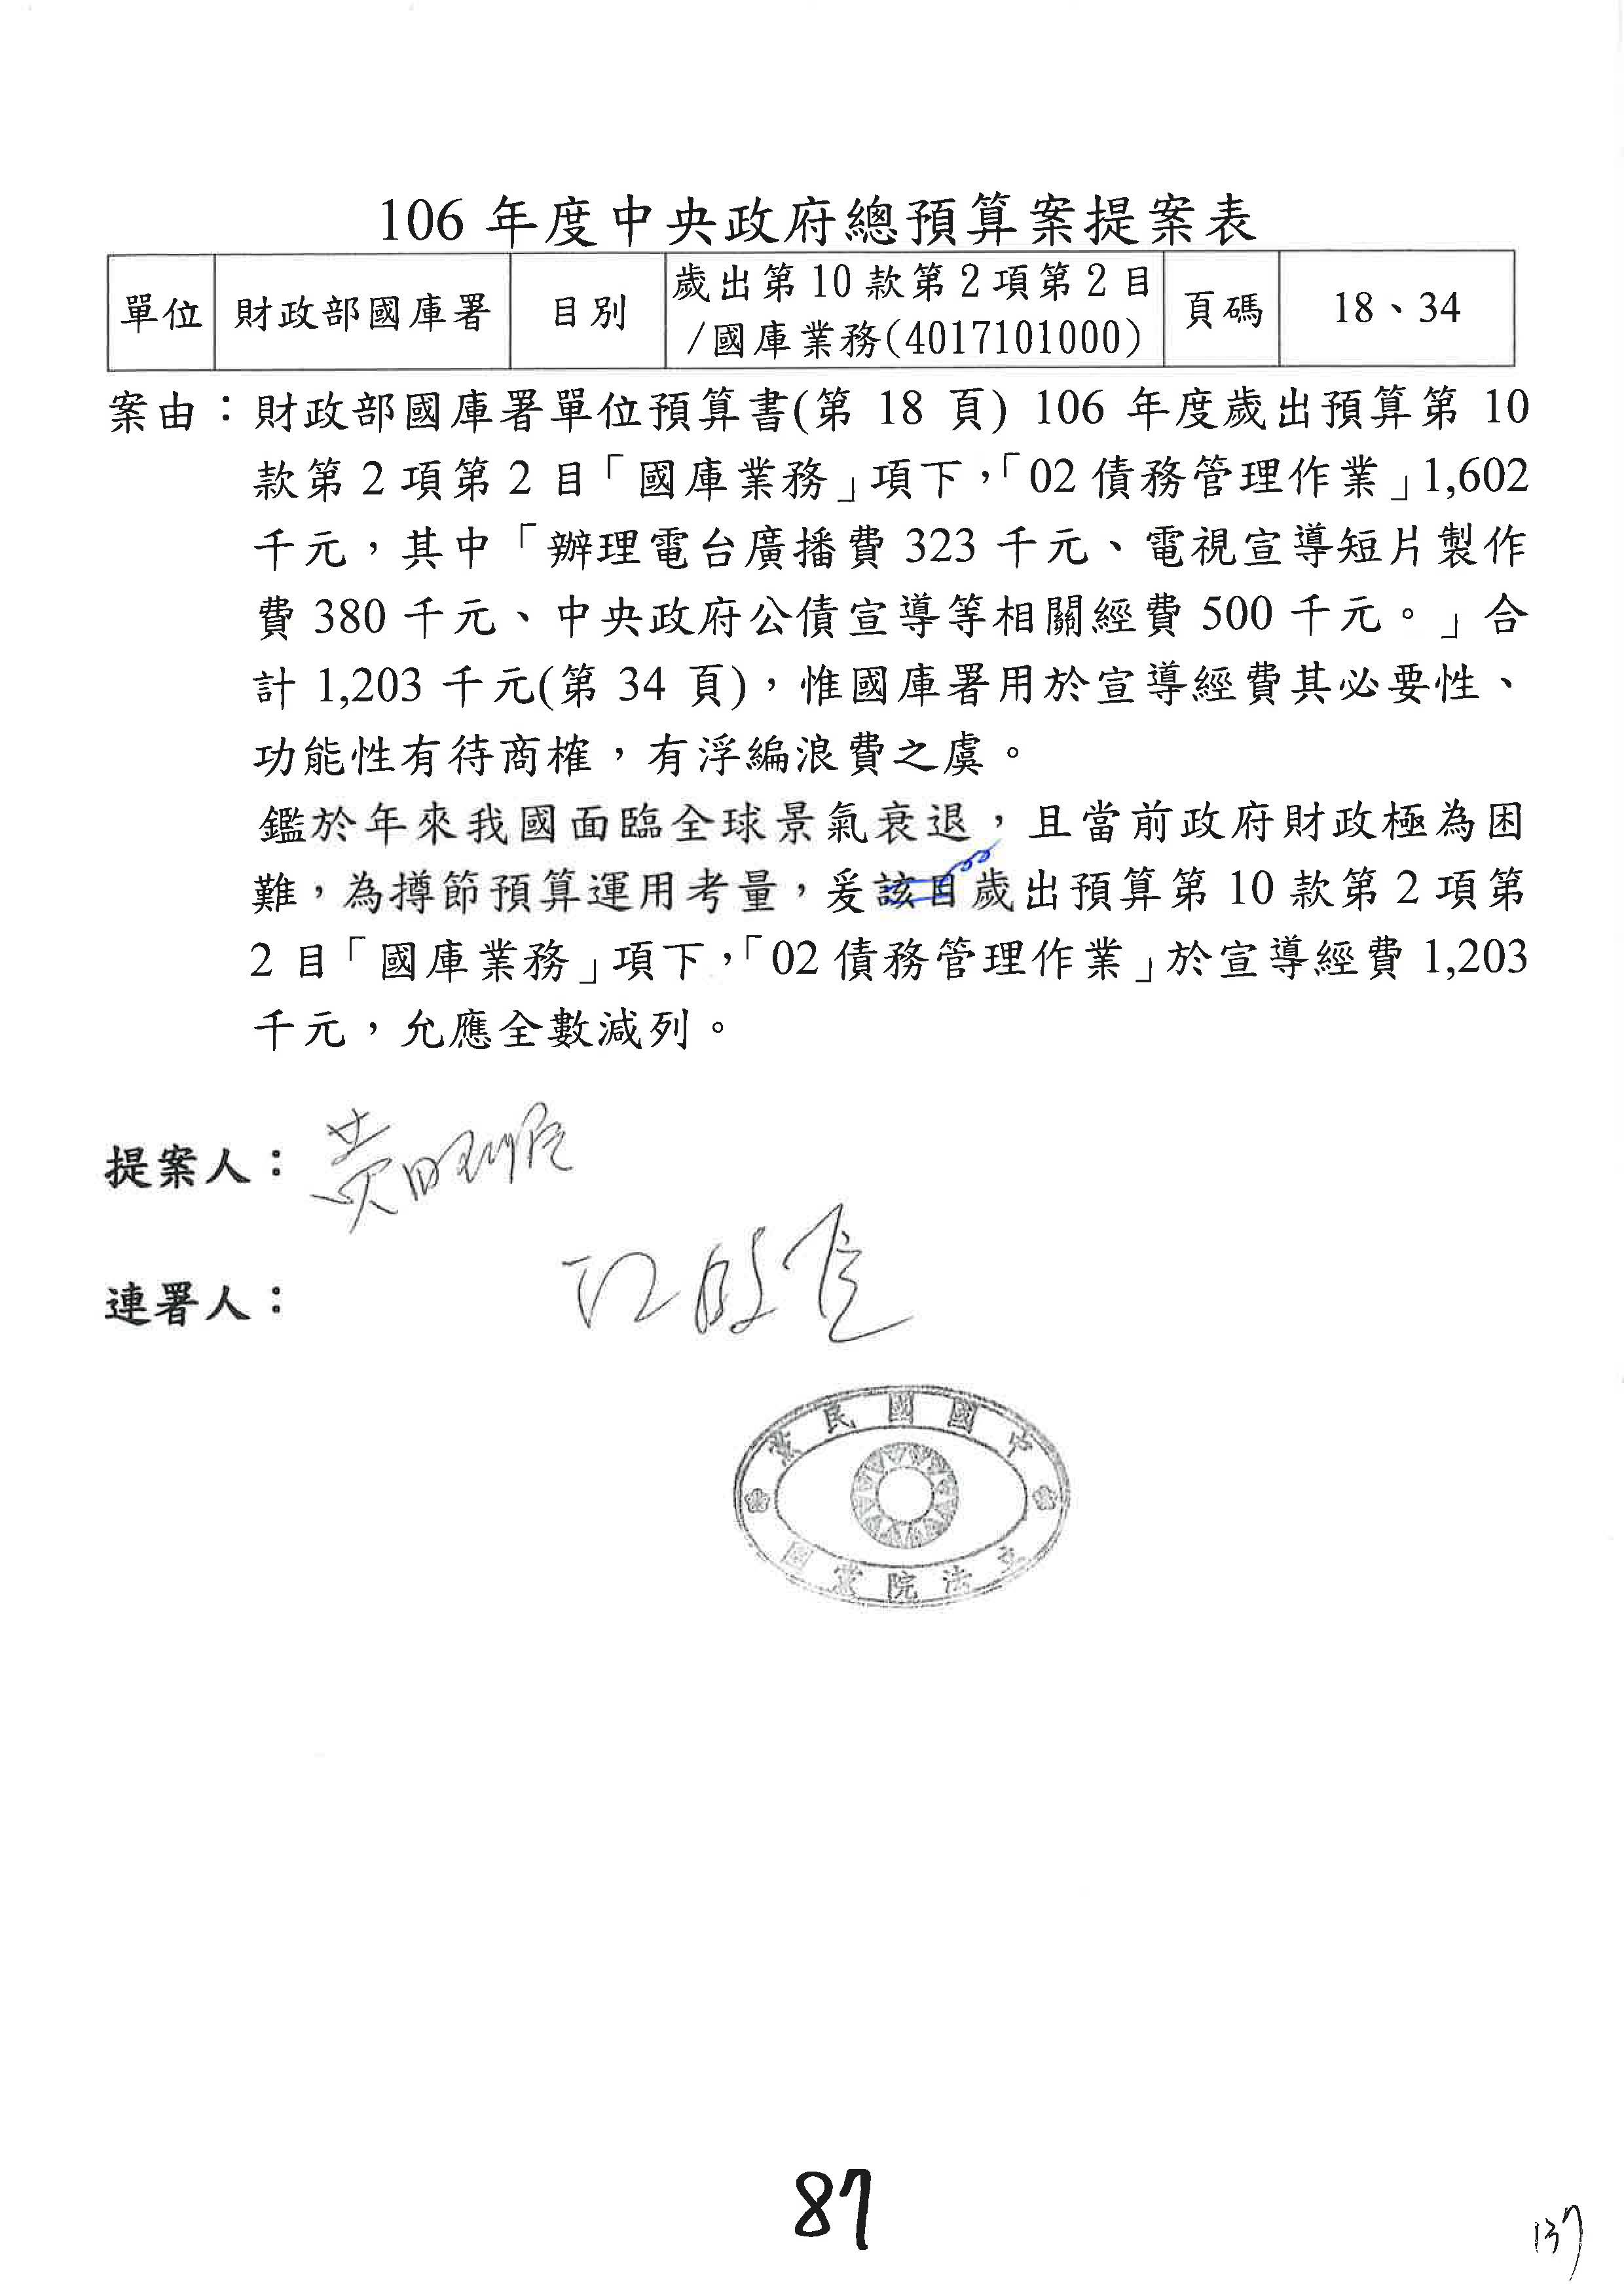 106 年度中央政府總預算案提案表
單位 財政部國庫署 目別 歲出第 10 款第 2 項第 2 目/國庫業務(4017101000) 頁碼 18、34
案由：財政部國庫署單位預算書(第 18 頁) 106 年度歲出預算第 10
款第 2 項第 2 目「國庫業務」項下，「02 債務管理作業」1,602
千元，其中「辦理電台廣播費 323 千元、電視宣導短片製作
費 380 千元、中央政府公債宣導等相關經費 500 千元。」合
計 1,203 千元(第 34 頁)，惟國庫署用於宣導經費其必要性、
功能性有待商榷，有浮編浪費之虞。
鑑於年來我國面臨全球景氣衰退，且當前政府財政極為困
難，為撙節預算運用考量，爰該目歲出預算第 10 款第 2 項第
2 目「國庫業務」項下，「02 債務管理作業」於宣導經費 1,203
千元，允應全數減列。
提案人：
連署人：江啟臣
中國國民黨
立法院黨團
87
137